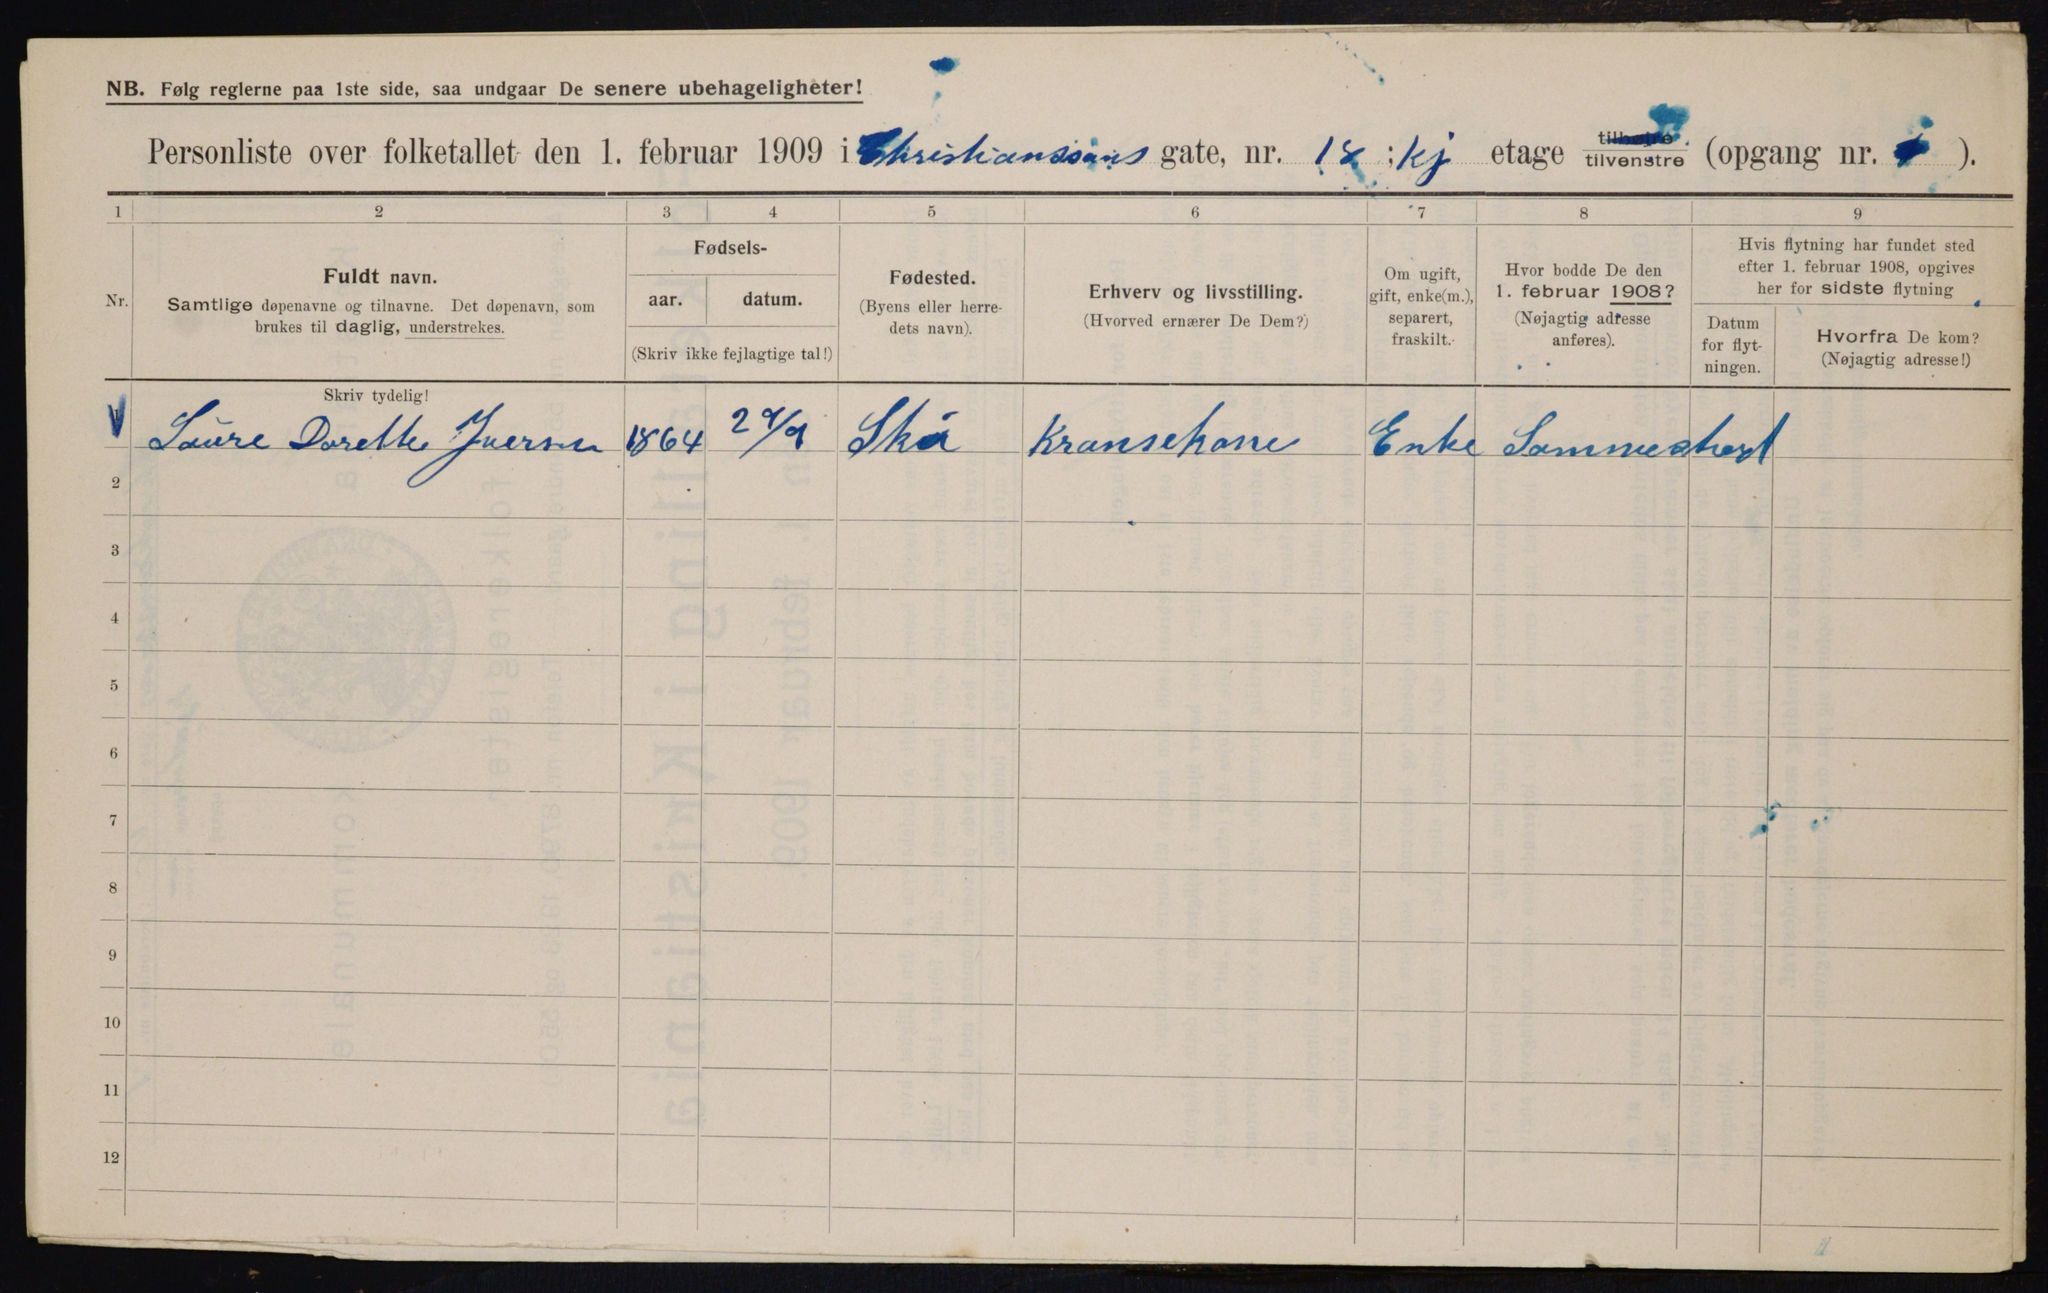 NB. Følg reglerne paa 1ste side, saa undgaar De senere ubehageligheter!
Personliste over folketallet den 1. februar 1909 i Christianssans gate, nr. 18 : Kj etage tilhøjre tilvenstre (opgang nr. ).
1 2 3 4 5 6 7 8 9
Nr.
Fuldt navn.
Samtlige døpenavne og tilnavne. Det døpenavn, som
brukes til daglig, understrekes.
Fødsels-
aar. datum.
(Skriv ikke fejlagtige tal!)
Fødested.
(Byens eller herre-
dets navn).
Erhverv og livsstilling.
(Hvorved ernærer De Dem?)
Om ugift,
gift, enke(m.),
separert,
fraskilt.
Hvor bodde De den
1. februar 1908?
(Nøjagtig adresse
anføres).
Hvis flytning har fundet sted
efter 1. februar 1908, opgives
her for sidste flytning
Datum
for flyt-
ningen.
Hvorfra De kom?
(Nøjagtig adresse!)
Skriv tydelig!
1 Laure Dorette Iversen 1864 29/9 Skå Kransekone Enke Sammested
2
3
4
5
6
7
8
9
10
11
12